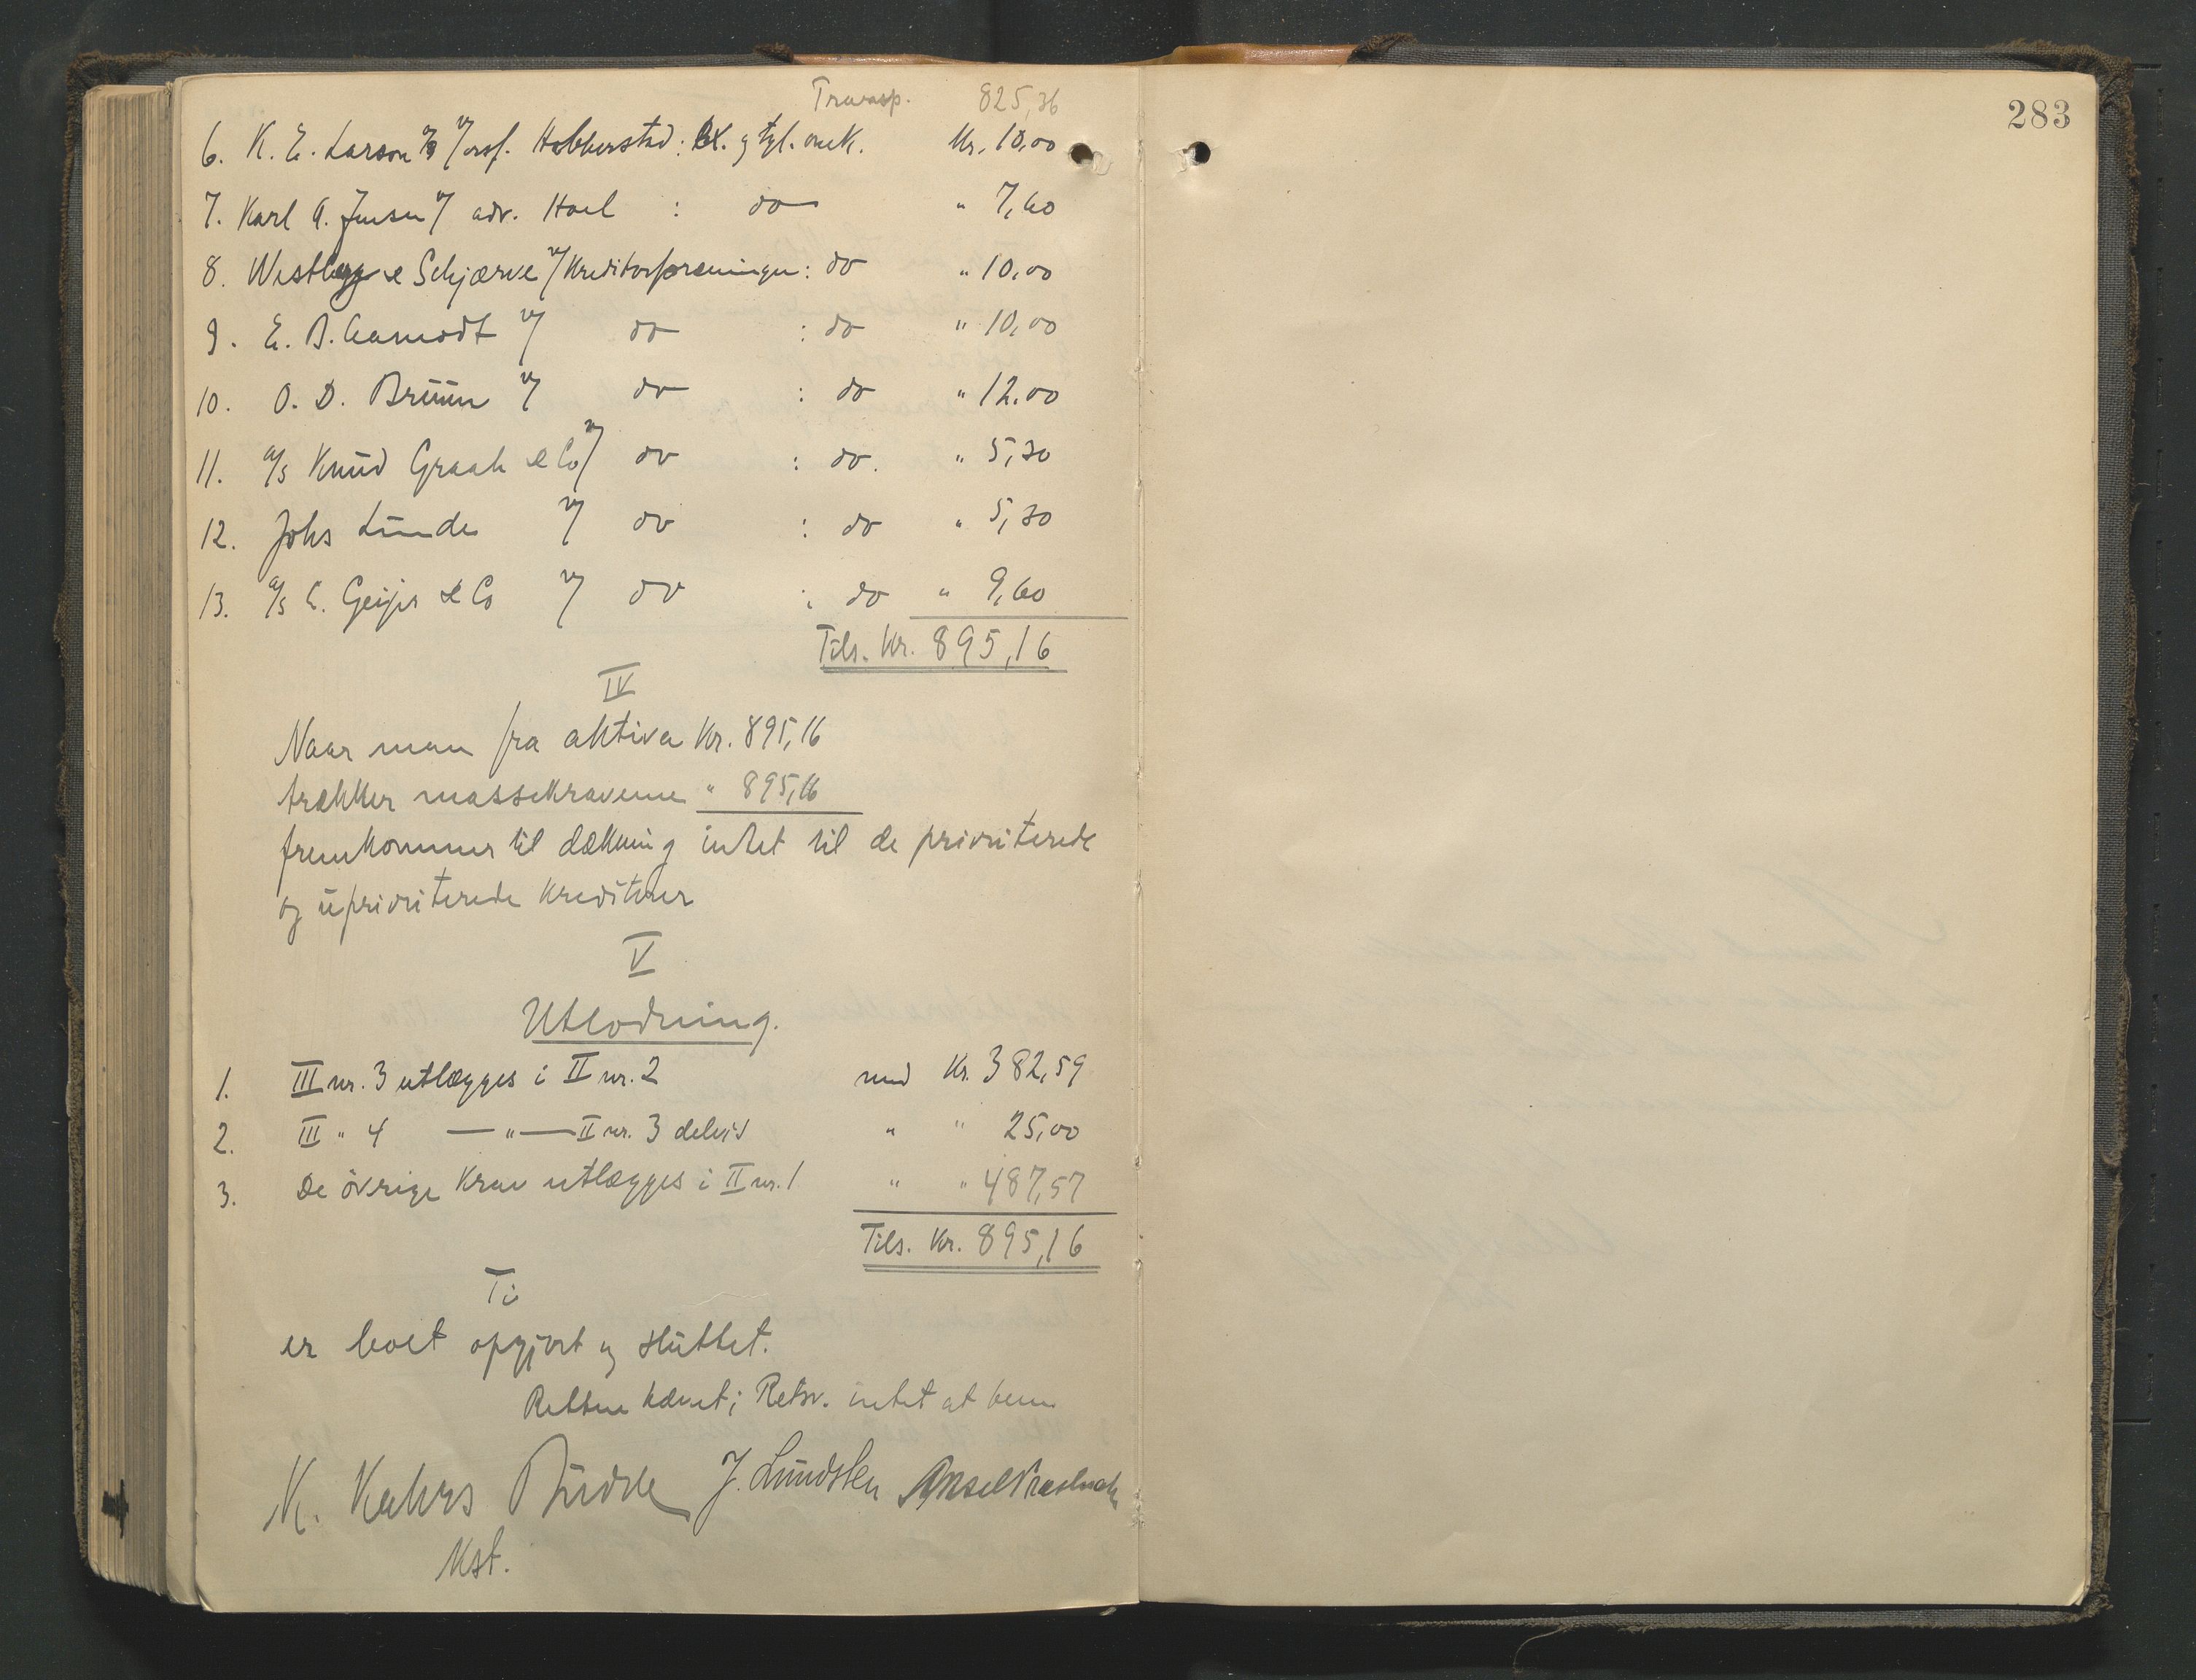 Transp. 825,36
6. K. E. Larson A/S v/ orsf. Hobberstad: Bl. og tgl. omk. Kr. 10,00
7. Karl A. Jensen v/ adv. Hoel : do " 7,60
8. Westbye & Schjærve v/ Kreditorforeningen: do " 10,00
9. E. B. Aamodt v/ do : do " 10,00
10. O. D. Bruun v/ do : do " 12,00
11. A/S Knud Graah & Co v/ do : do. " 5,30
12. Johs Lunde v/ do : do " 5,30
13. A/S C. Geijer & Co v/ do : do " 9,60
Tils. Kr. 895,16
IV
Naar man fra aktiva Kr. 895,16
trækker massekravene " 895,16
fremkommer til dækning intet til de prioriterede
og uprioriterede kreditorer
V
Utlodning.
1. III nr. 3 utlægges i II nr. 2 med Kr. 382,59
2. III " 4 — " — II nr. 3 delvis " " 25,00
3. De övrige krav utlægges i II nr. 1 " " 487,57
Tils. Kr. 895,16
Ti
er boet opgjort og sluttet.
Retten hævet; Retsv. intet at bem.
K. Kahrs Budde J. Lundsten Aksel
Kst.
283